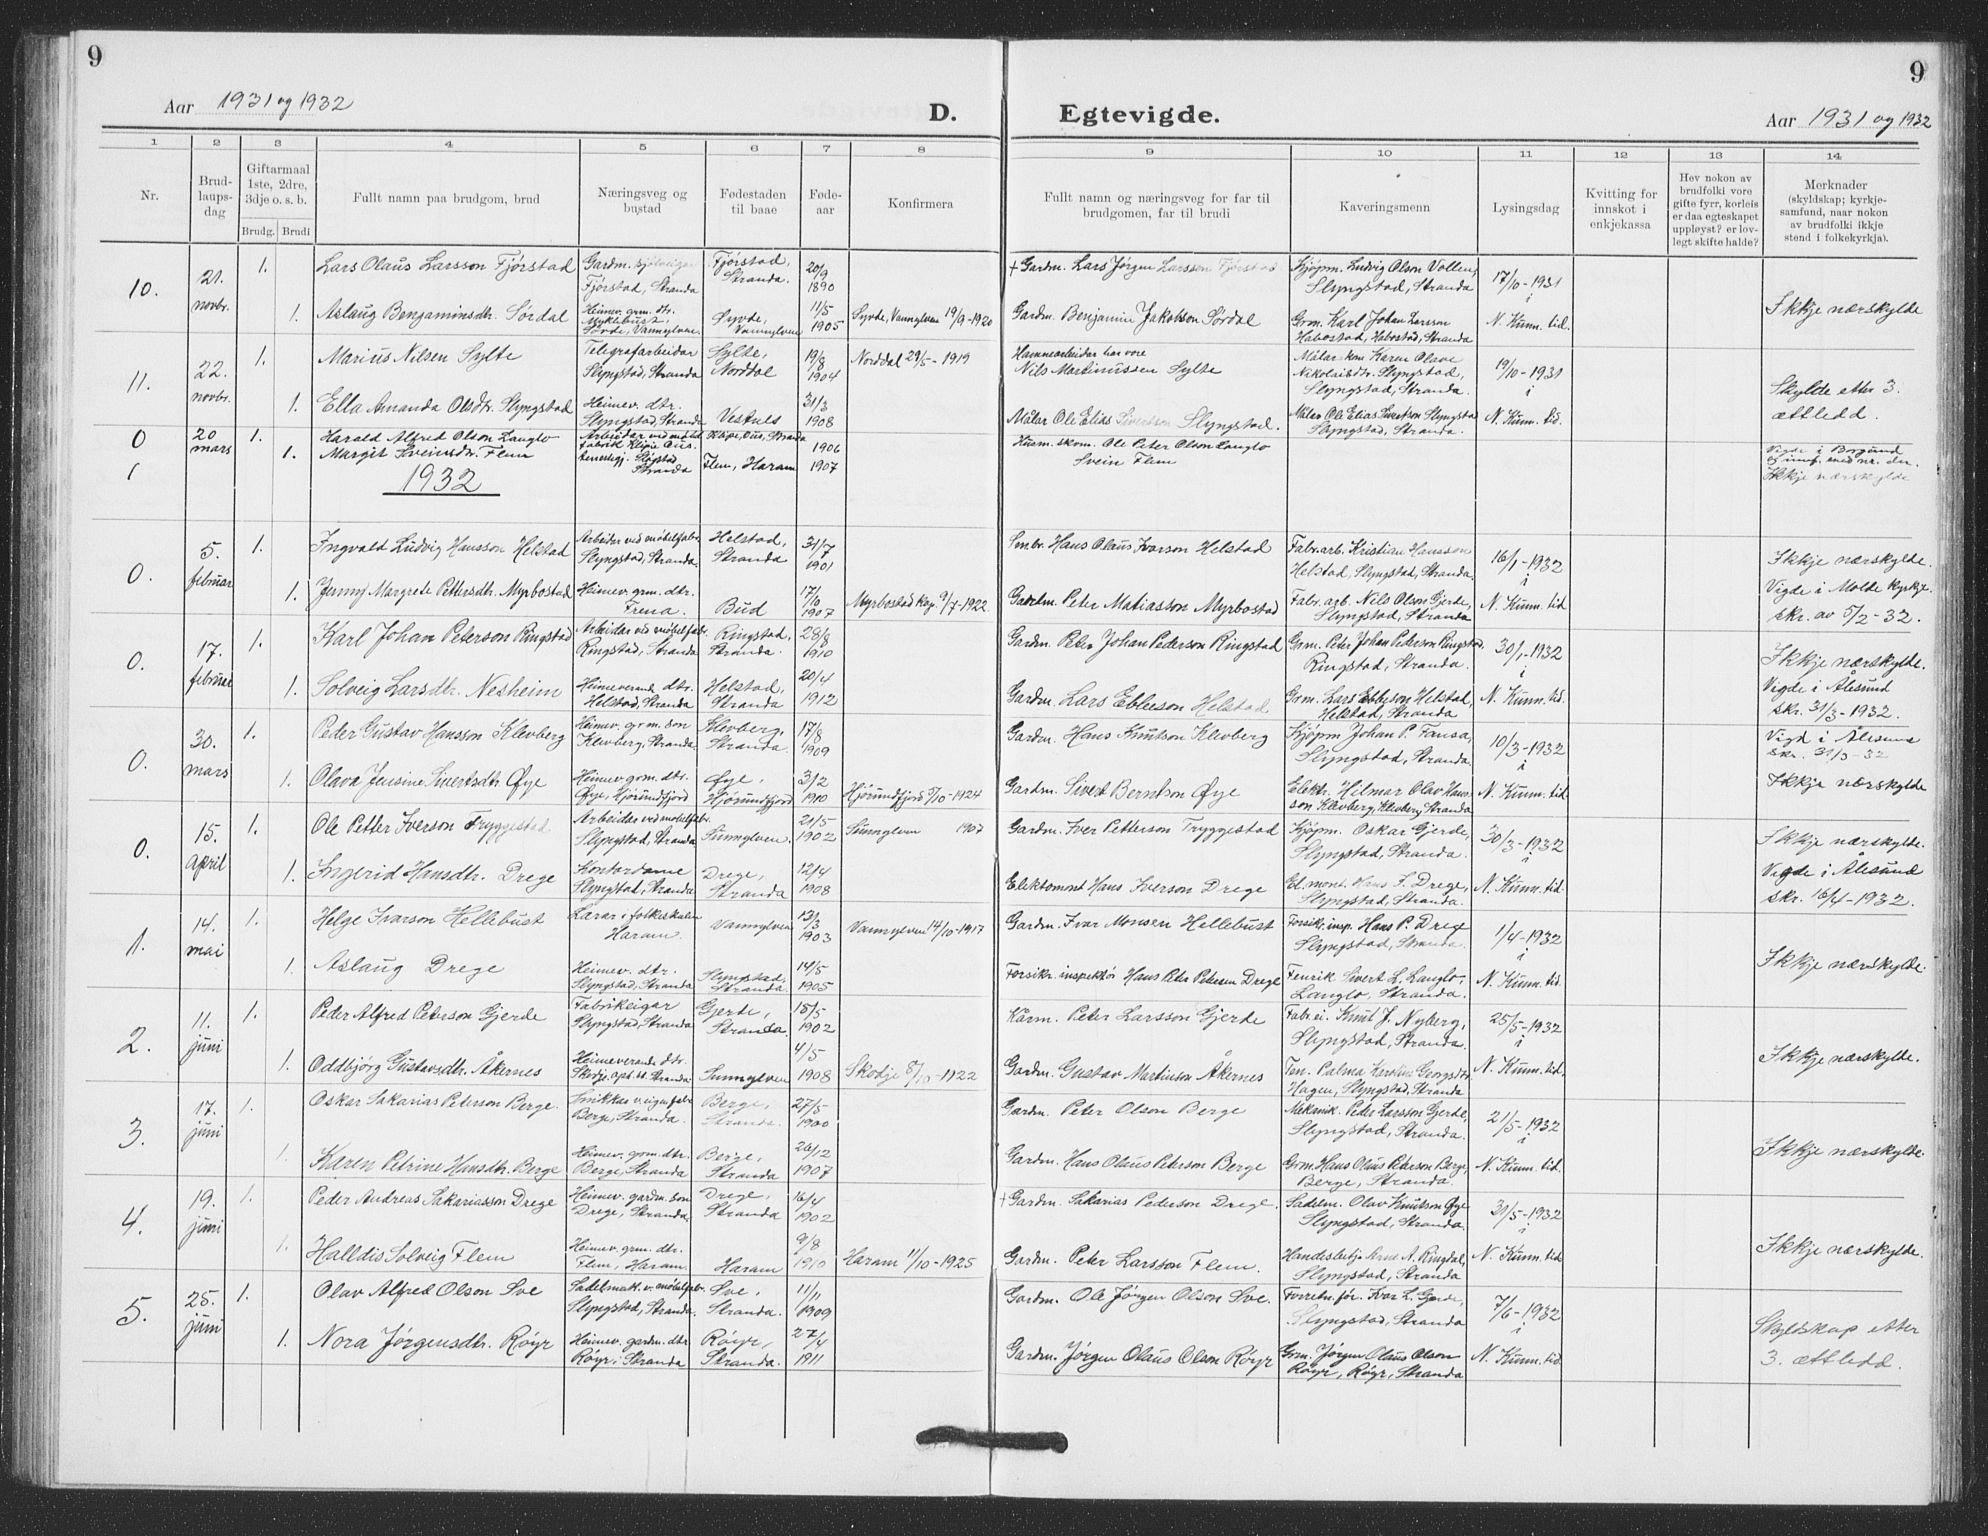 9
9
Aar 1931 og 1932
D.
Egtevigde.
Aar 1931 og 1932
1 2 3 4 5 6 7 8
9 10 11 12 13 14
Nr.
Brud-
laups-
dag
Giftarmaal
1ste, 2dre,
3dje o. s. b.
Brudg. Brudi
Fullt namn paa brudgom, brud
Næringsveg og
bustad
Fødestaden
til baae
Føde-
aar
Konfirmera
Fullt namn og næringsveg for far til
brudgomen, far til brudi
Kaveringsmenn
Lysingsdag
Kvitting for
innskot i
enkjekassa
Hev nokon av
brudfolki vore
gifte fyrr, korleis
er daa egteskapet
uppløyst? er lov-
legt skifte halde?
Merknader
(skyldskap; kyrkje-
samfund, naar nokon
av brudfolki ikkje
stend i folkekyrkja).
10.
21.
novbr.
1.
Lars Olaus Larsson Fjørstad
Gardm.
Fjørstad, Stranda
Fjørstad,
Stranda.
20/9
1890
+ Gardm. Lars Jørgen Larsson Fjørstad
Kjøpm. Ludvig Olson Vollen,
Slyngstad, Stranda
17/10-1931
Ikkje nærskylde
1.
Aslaug Benjaminsdtr. Sørdal
Heimev. grm. dtr.
Syvde,
Vannylven
11/5
1905
Syvde, Vannylven 19/9-1920
Gardm. Benjamin Jakobson Sørdal
Grm. Karl Johan Larsson
Habostad, Habostad, Stranda
N. Kunn. tid.
11.
22.
novbr.
1.
Marius Nilsen Sylte
Telegrafarbeidar
Slyngstad, Stranda
Sylte,
Norddal
19/8
1904
Norddal 29/5-1919
Nils Martinussen Sylte
Slyngstad, Stranda
19/10-1931
i
Skylde etter 3.
ættledd.
1.
Ella Amanda Olsdtr. Slyngstad
Heimev. dtr.
Slyngstad, Stranda
31/3
1908
Målar Ole Elias Sivertson Slyngstad.
Målar Ole Elias Sivertson Slyngstad
Slyngstad, Stranda.
N. Kunn. tid.
0
20
mars
1.
Harald Alfred Olson Langlo
1906
Ole Peter Olson Langlo
Vigde i Borgund
1
1.
Margit Sveinsdtr. Flem
Stranda
Flem, Haram
1907
Svein Flem
Ikkje nærskylde
1932
0.
5.
februar
1.
Ingvald Ludvig Hansson Helstad
Arbeidar ved møbelfabr.
Slyngstad, Stranda.
Helstad,
Stranda
31/7
1901
Smbr. Hans Olaus Ivarson Helstad
Fabr.arb. Kristian Hansson
Helstad, Slyngstad, Stranda.
16/1-1932
i
Ikkje nærskylde.
Vigde i Molde kyrkje.
skr. av 5/2-32.
1.
Jenny Margrete Pettersdtr. Myrbostad
Heimev. grm. dtr.
Frena.
Bud
17/10
1907
Myrbostad kap. 9/7-1922
Gardm. Peter Matiasson Myrbostad
Fabr. arb. Nils Olson Gjerde,
Slyngstad, Stranda
N. Kunn. tid
0.
17.
februar
1.
Karl Johan Peterson Ringstad
Arbeidar ved møbelfabr.
Ringstad, Stranda
Ringstad,
Stranda.
28/8
1910
Gardm. Peter Johan Pederson Ringstad
Grm. Peter Johan Pederson Ringstad
Ringstad, Stranda.
30/1-1932
i
Ikkje nærskylde.
Vigde i Ålesund
skr. 31/3-1932.
1.
Solveig Larsdtr. Nesheim
Heimeverande dtr.
Helstad, Stranda
Helstad,
Stranda
20/4
1912
Gardm. Lars Ebbeson Helstad
Grm. Lars Ebbeson Helstad,
Helstad, Stranda
N. Kunn. tid.
0.
30.
mars
1.
Peder Gustav Hansson Klevberg
Heimev. grm. son
Klevberg, Stranda
Klevberg,
Stranda.
17/8
1909
Gardm. Hans Knutson Klevberg
Kjøpm Johan P. Tansa,
Slyngstad, Stranda.
10/3-1932
i
Vigd i Ålesund
skr. 31/3-32
Ikkje nærskylde
1.
Olava Jensine Sivertsdtr. Øye
Heimev. grm. dtr.
Øye, Hjørundfjord
Øye,
Hjørundfjord
3/2
1910
Hjørundfjord 5/10-1924
Gardm. Sivert Berntson Øye
Elektr. Helmar Olav Hans-
son Klevberg, Klevberg, Stranda
N. Kunn. tid
0.
15.
april
1.
Ole Petter Iverson Tryggestad
Arbeidar ved møbelfabr.
Slyngstad, Stranda
Sunnylven.
21/5
1902
Sunnylven 1907
Gardm. Iver Petterson Tryggestad
Kjøpm. Oskar Gjerde,
Slyngstad, Stranda.
30/3-1932
i
Ikkje nærskylde.
Vigde i Ålesund
skr. 16/4-1932.
1.
Ingerid Hansdtr. Drege
Kontordame
Slyngstad, Stranda
Drege,
Stranda
12/4
1908
Elektomont Hans Iverson Drege
El. mont. Hans I. Drege,
Slyngstad, Stranda.
N. Kunn. tid.
1.
14.
mai
1.
Helge Ivarson Hellebust
Lærar i folkeskulen
Haram.
Vannylven
13/3
1903
Vannylven 14/10-1917
Gardm. Ivar Monsen Hellebust
Forsikr.insp. Hans P. Drege
Slyngstad, Stranda.
1/4-1932
i
Ikkje nærskylde.
1.
Aslaug Drege
Heimev. dtr.
Slyngstad, Stranda
Slyngstad,
Stranda.
14/5
1905
Forsikr. inspektør Hans Peter Petersen Drege
Fenrik Sivert L. Langlo,
Langlo, Stranda.
N. Kunn. tid.
2.
11.
juni
1.
Peder Alfred Peterson Gjerde
Fabrikeigar
Slyngstad, Stranda
Gjerde,
Stranda.
15/5
1902
Kårm. Peter Larsson Gjerde
Fabr.ei. Knut J. Nyberg,
Slyngstad, Stranda.
25/5-1932
i
Ikkje nærskylde.
1.
Oddbjørg Gustavsdtr. Åkernes
Heimeverande dtr.
Sunnylven
4/5
1908
Skodje 8/10-1922
Gardm. Gustav Martinson Åkernes
Hagen, Slyngstad, Stranda
N. Kunn. tid.
3.
17.
juni
1.
Oskar Sakarias Peterson Berge.
Snikkar v. eigen fabr.
Berge, Stranda.
Berge,
Stranda.
27/5
1900
Gardm. Peter Olson Berge
Mekanik. Peder Larsson Gjerde,
Slyngstad, Stranda.
21/5-1932
i
Ikkje nærskylde.
1.
Karen Petrine Hansdtr. Berge
Heimev. grm. dtr.
Berge, Stranda
Berge,
Stranda
26/12
1907
Gardm. Hans Olaus Peterson Berge
Grm. Hans Olaus Peterson Berge,
Berge, Stranda.
N. Kunn. tid.
4.
19.
juni
1.
Peder Andreas Sakariasson Drege
Heimev. gardm. son
Drege, Stranda.
Drege,
Stranda
16/4
1902
+ Gardm. Sakarias Pederson Drege
Sadelm. Olav Knutson Øye
Slyngstad, Stranda.
21/5-1932
i
Ikkje nærskylde.
1.
Halldis Solveig Flem
Heimev. grm. dtr.
Flem, Haram.
Haram
9/8
1910
Haram 11/10-1925
Gardm. Peter Larsson Flem.
Handelsbetj. Arne A. Ringdal,
Slyngstad, Stranda
N. Kunn. tid
5.
25.
juni
1.
Olav Alfred Olson Sve
Sadelmak. v. møbelfabr.
Slyngstad, Stranda
Sve,
Stranda.
11/11
1909
Gardm. Ole Jørgen Olson Sve.
Forretn.før. Ivar L. Gjerde,
Slyngstad, Stranda
7/6-1932
i
Skyldskap etter
3. ættledd.
1.
Nora Jørgensdtr. Røyr
Heimev. gardm. dtr.
Røyr, Stranda
Røyr,
Stranda.
27/4
1911
Gardm. Jørgen Olaus Olson Røyr
Grm. Jørgen Olaus Olson
Røyr, Røyr, Stranda
N. Kunn. tid.